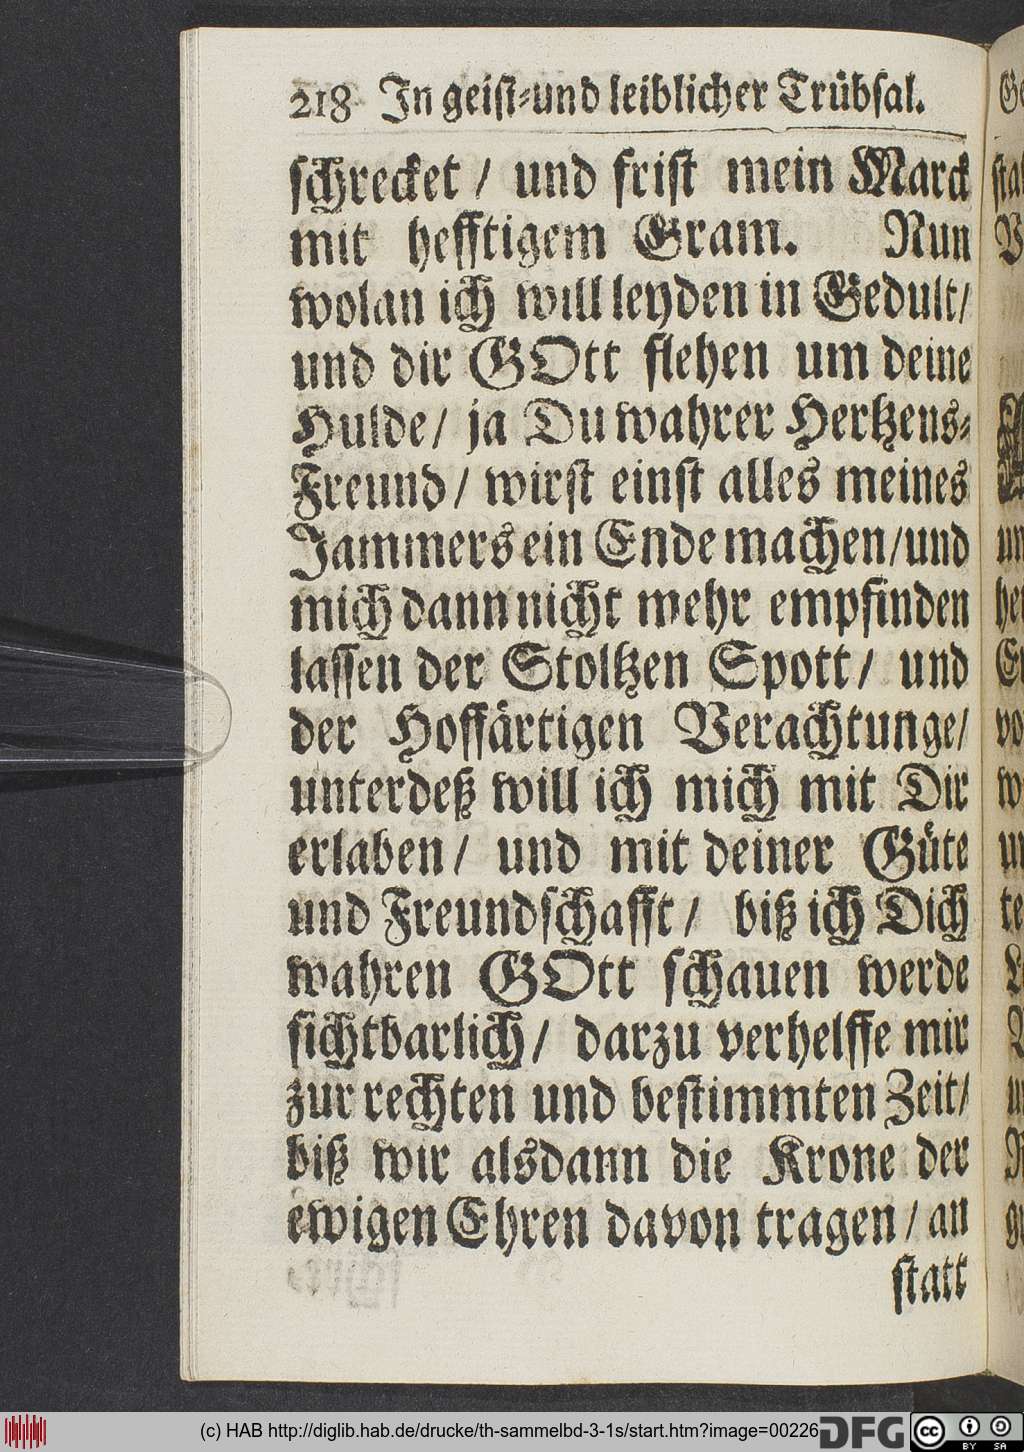 218 In geist-und leiblicher Trübsal.
schrecket / und frist mein Marck
mit hefftigem Gram. Nun
wolan ich will leyden in Gedult/
und dir GOtt flehen um deine
Hulde/ ja Du wahrer Hertzens-
Freund/ wirst einst alles meines
Jammers ein Ende machen/und
mich dann nicht mehr empfinden
lassen der Stoltzen Spott/ und
der Hoffärtigen Verachtunge/
unterdeß will ich mich mit Dir
erlaben/ und mit deiner Güte
und Freundschafft/ biß ich Dich
wahren GOtt schauen werde
sichtbarlich/ darzu verhelffe mir
zur rechten und bestimmten Zeit/
biß wir alsdann die Krone der
ewigen Ehren davon tragen/ an
statt
(c) HAB http://diglib.hab.de/drucke/th-sammelbd-3-1s/start.htm?image=00226
DFG
cc BY SA